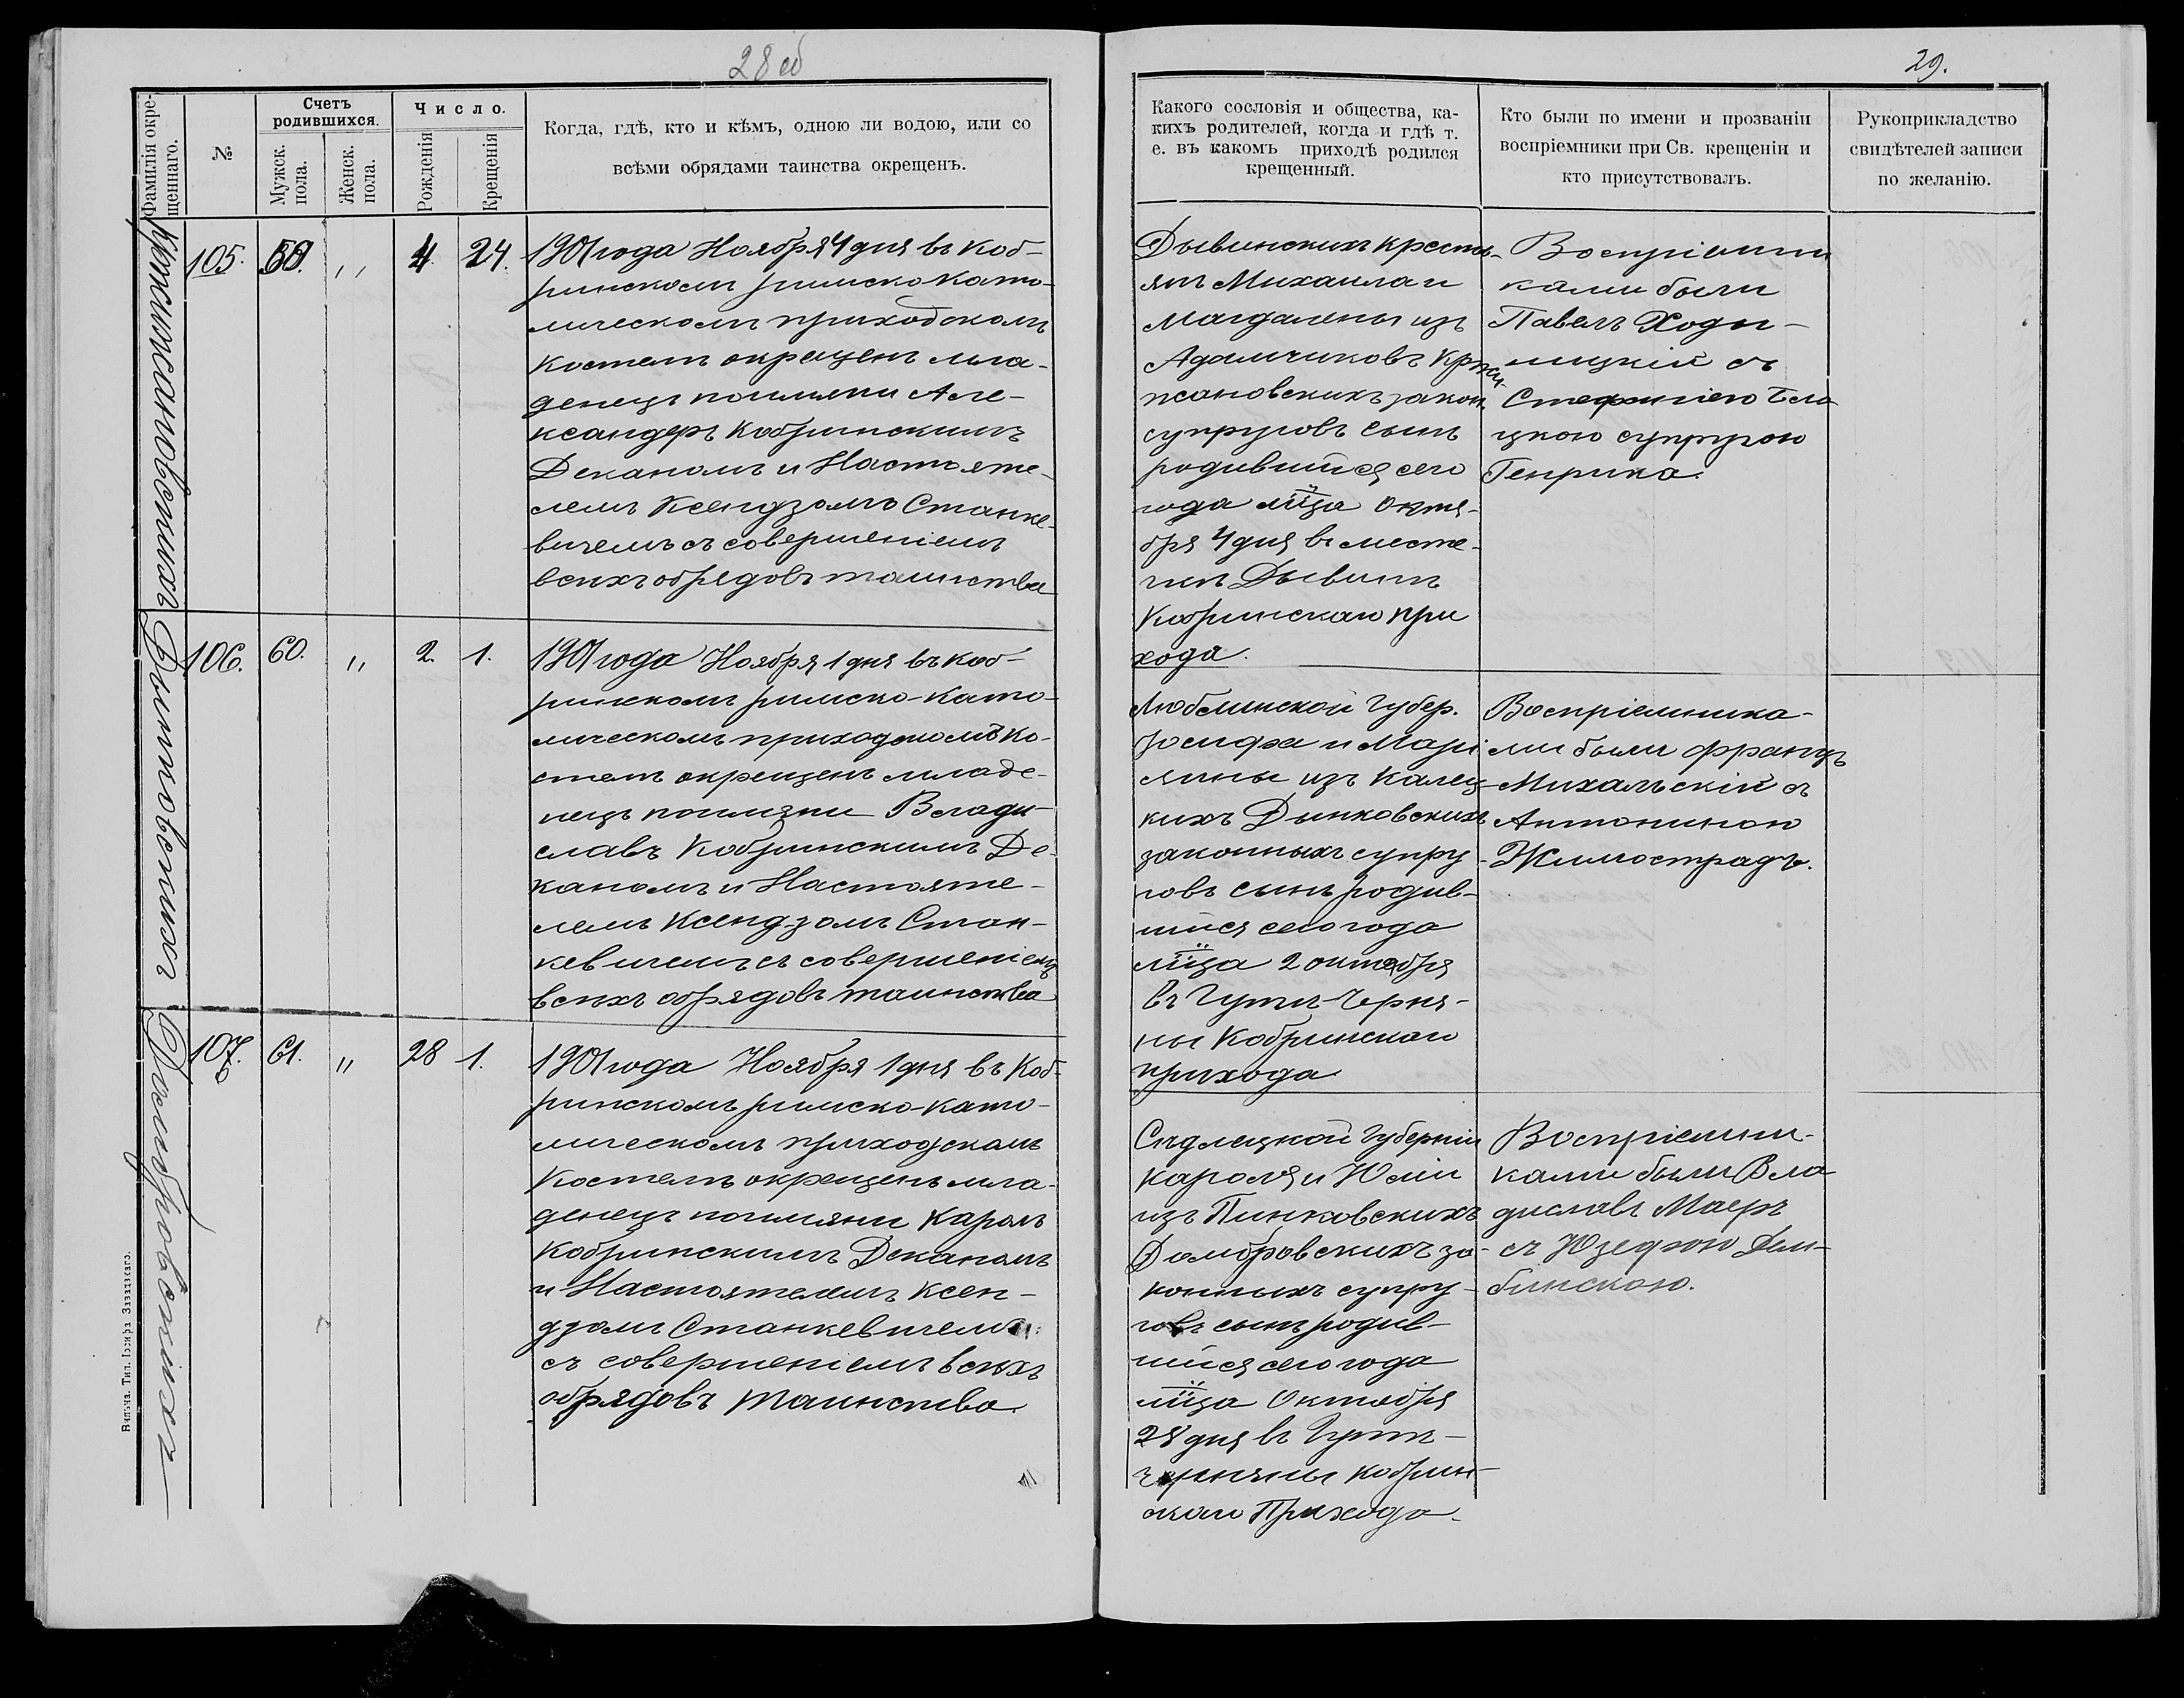 28 об
29.
Фамилія окре-
щеннаго.
№
Счетъ
родившихся.
Мужск.
пола.
Женск.
пола.
Число.
Рожденія
Крещенія
Когда, гдѣ, кто и кѣмъ, одною ли водою, или со
всѣми обрядами таинства окрещенъ.
Какого сословія и общества, ка-
кихъ родителей, когда и гдѣ т.
е. въ какомъ приходѣ родился
крещенный.
Кто были по имени и прозванiи
воспріемники при Св. крещеніи и
кто присутствовалъ.
Рукоприкладство
свидѣтелей записи
по желанію.
Кржижановскихъ
105.
„
4
24.
1901 года Ноября 4 дня въ Коб-
ринскомъ римско като-
лическомъ приходскомъ
костелѣ окрещенъ мла-
денецъ по имени Але-
ксандеръ Кобринскимъ
Деканомъ и Настояте-
лемъ Ксендзомъ Станке-
вичемъ съ совершеніемъ
всѣхъ обрядовъ таинства
Дывинскихъ кресть-
янъ Михаила и
Магдалены изъ
Адамчиковъ Кржи-
жановскихъ закон.
супруговъ сынъ
родившійся сего
года мца Октя-
бря 4 дня въ месте-
чкѣ Дывинѣ
Кобринскаго при
хода.
Воспріемни
ками были
Павелъ Ходы-
ницкій съ
Стефаніею Бело
цкою супругою
Генрика.
Дынковскихъ
106.
60.
„
2
1.
1901 года Ноября 1 дня въ Коб-
ринскомъ римско-като-
лическомъ приходскомъ ко-
стелѣ окрещенъ младе-
нецъ по имени Влади-
славъ Кобринскимъ Де-
каномъ и Настояте-
лемъ Ксендзомъ Стан-
кевичемъ съ совершеніемъ
всѣхъ обрядовъ таинства
Люблинской Губер.
Іосифа и Марі
янны изъ Калец-
кихъ Дынковскихъ
законныхъ супру-
говъ сынъ родив-
шійся сего года
мца 2 октября
въ Гутѣ-Черня-
ны Кобринскаго
прихода
Воспріемника-
ми были Францъ
Михальскій съ
Антониною
Жимострадъ.
Домбровскихъ
107.
61.
„
28
1.
1901 года Ноября 1 дня въ Коб-
ринскомъ римско-като-
лическомъ приходскомъ
Костелѣ окрещенъ мла-
денецъ по имяни Кароль
Кобринскимъ Деканомъ
и Настоятелемъ Ксен-
дзомъ Станкевичемъ
съ совершеніемъ всѣхъ
обрядовъ таинства.
Сѣдлецкой Губерніи
Кароля и Юліи
изъ Пинковскихъ
Домбровскихъ за-
конныхъ супру-
говъ сынъ родив-
шійся сего года
мца Октября
28 дня въ Гутѣ-
Черняны Кобрин-
скаго Прихода.
Воспріемни-
ками были Вла
диславъ Маеръ
съ Юзефою Дем-
бинскою.
Вильна. Тип. Іосифа Завадзкаго.